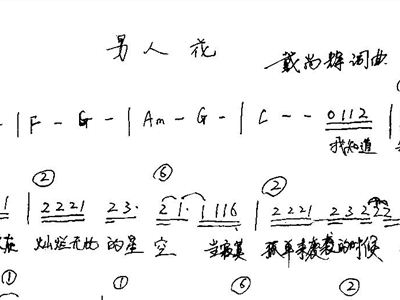 男人花
戴尚辉词曲
- | F - G - | Am - G - | C - - 0112 |
我知道
② ⑥ ②
1 | 2221 23· 21· 1116 | 2221 23222
灿烂无比的星空 当寂寞 孤单来侵袭的时候
① ① ⑥ ②